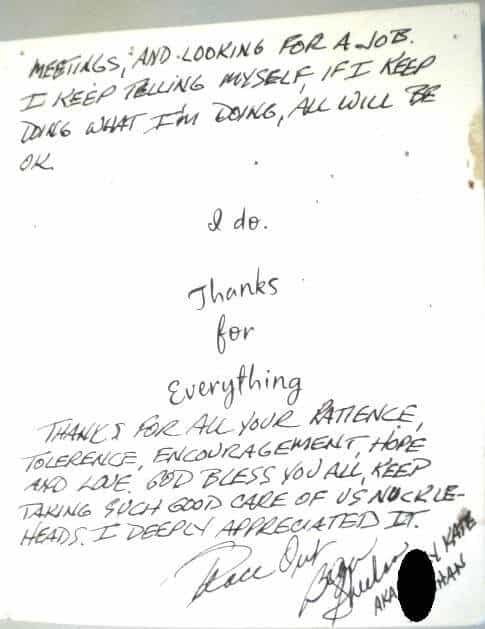 MEETINGS, AND LOOKING FOR A JOB.
I KEEP TELLING MYSELF, IF I KEEP
DOING WHAT I'M DOING, ALL WILL BE
OK.
I do.
Thanks
for
Everything
THANKS FOR ALL YOUR PATIENCE,
TOLERENCE, ENCOURAGEMENT, HOPE
AND LOVE. GOD BLESS YOU ALL, KEEP
TAKING SUCH GOOD CARE OF US NUCKLE-
HEADS. I DEEPLY APPRECIATED IT.
Peace Out
AKA KATE